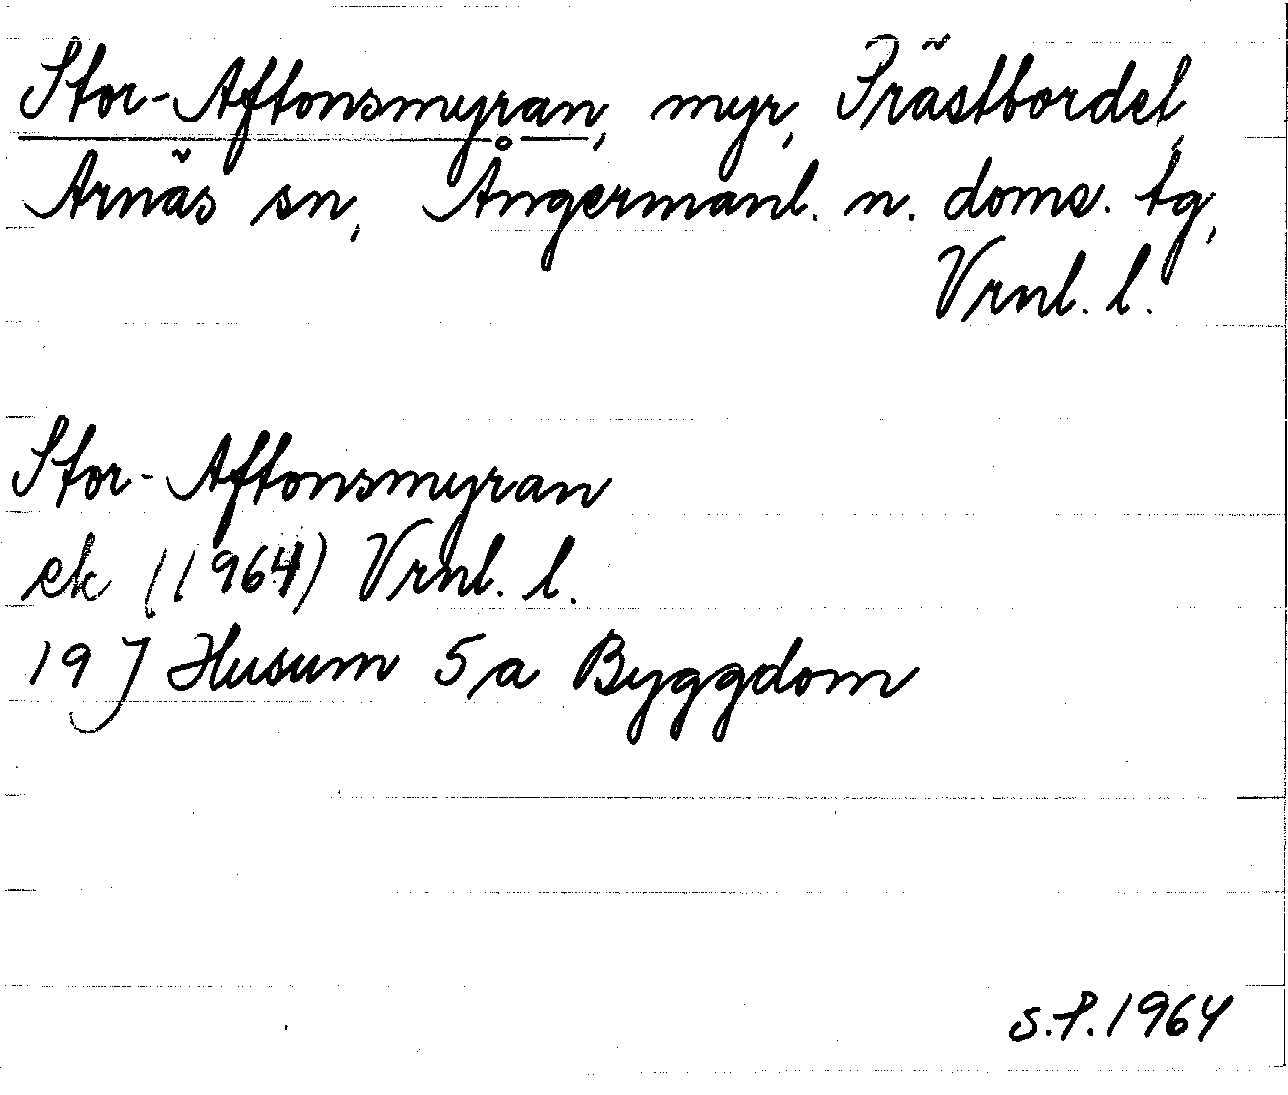 Stor-Aftonsmyran, myr, Prästbordet,
Arnäs sn, Ångermanl. n. doms. tg,
Vrnl. l.
Stor-Aftonsmyran
ek (1964) Vrnl. l.
19 J Husum 5 a Byggdom
S.P. 1964